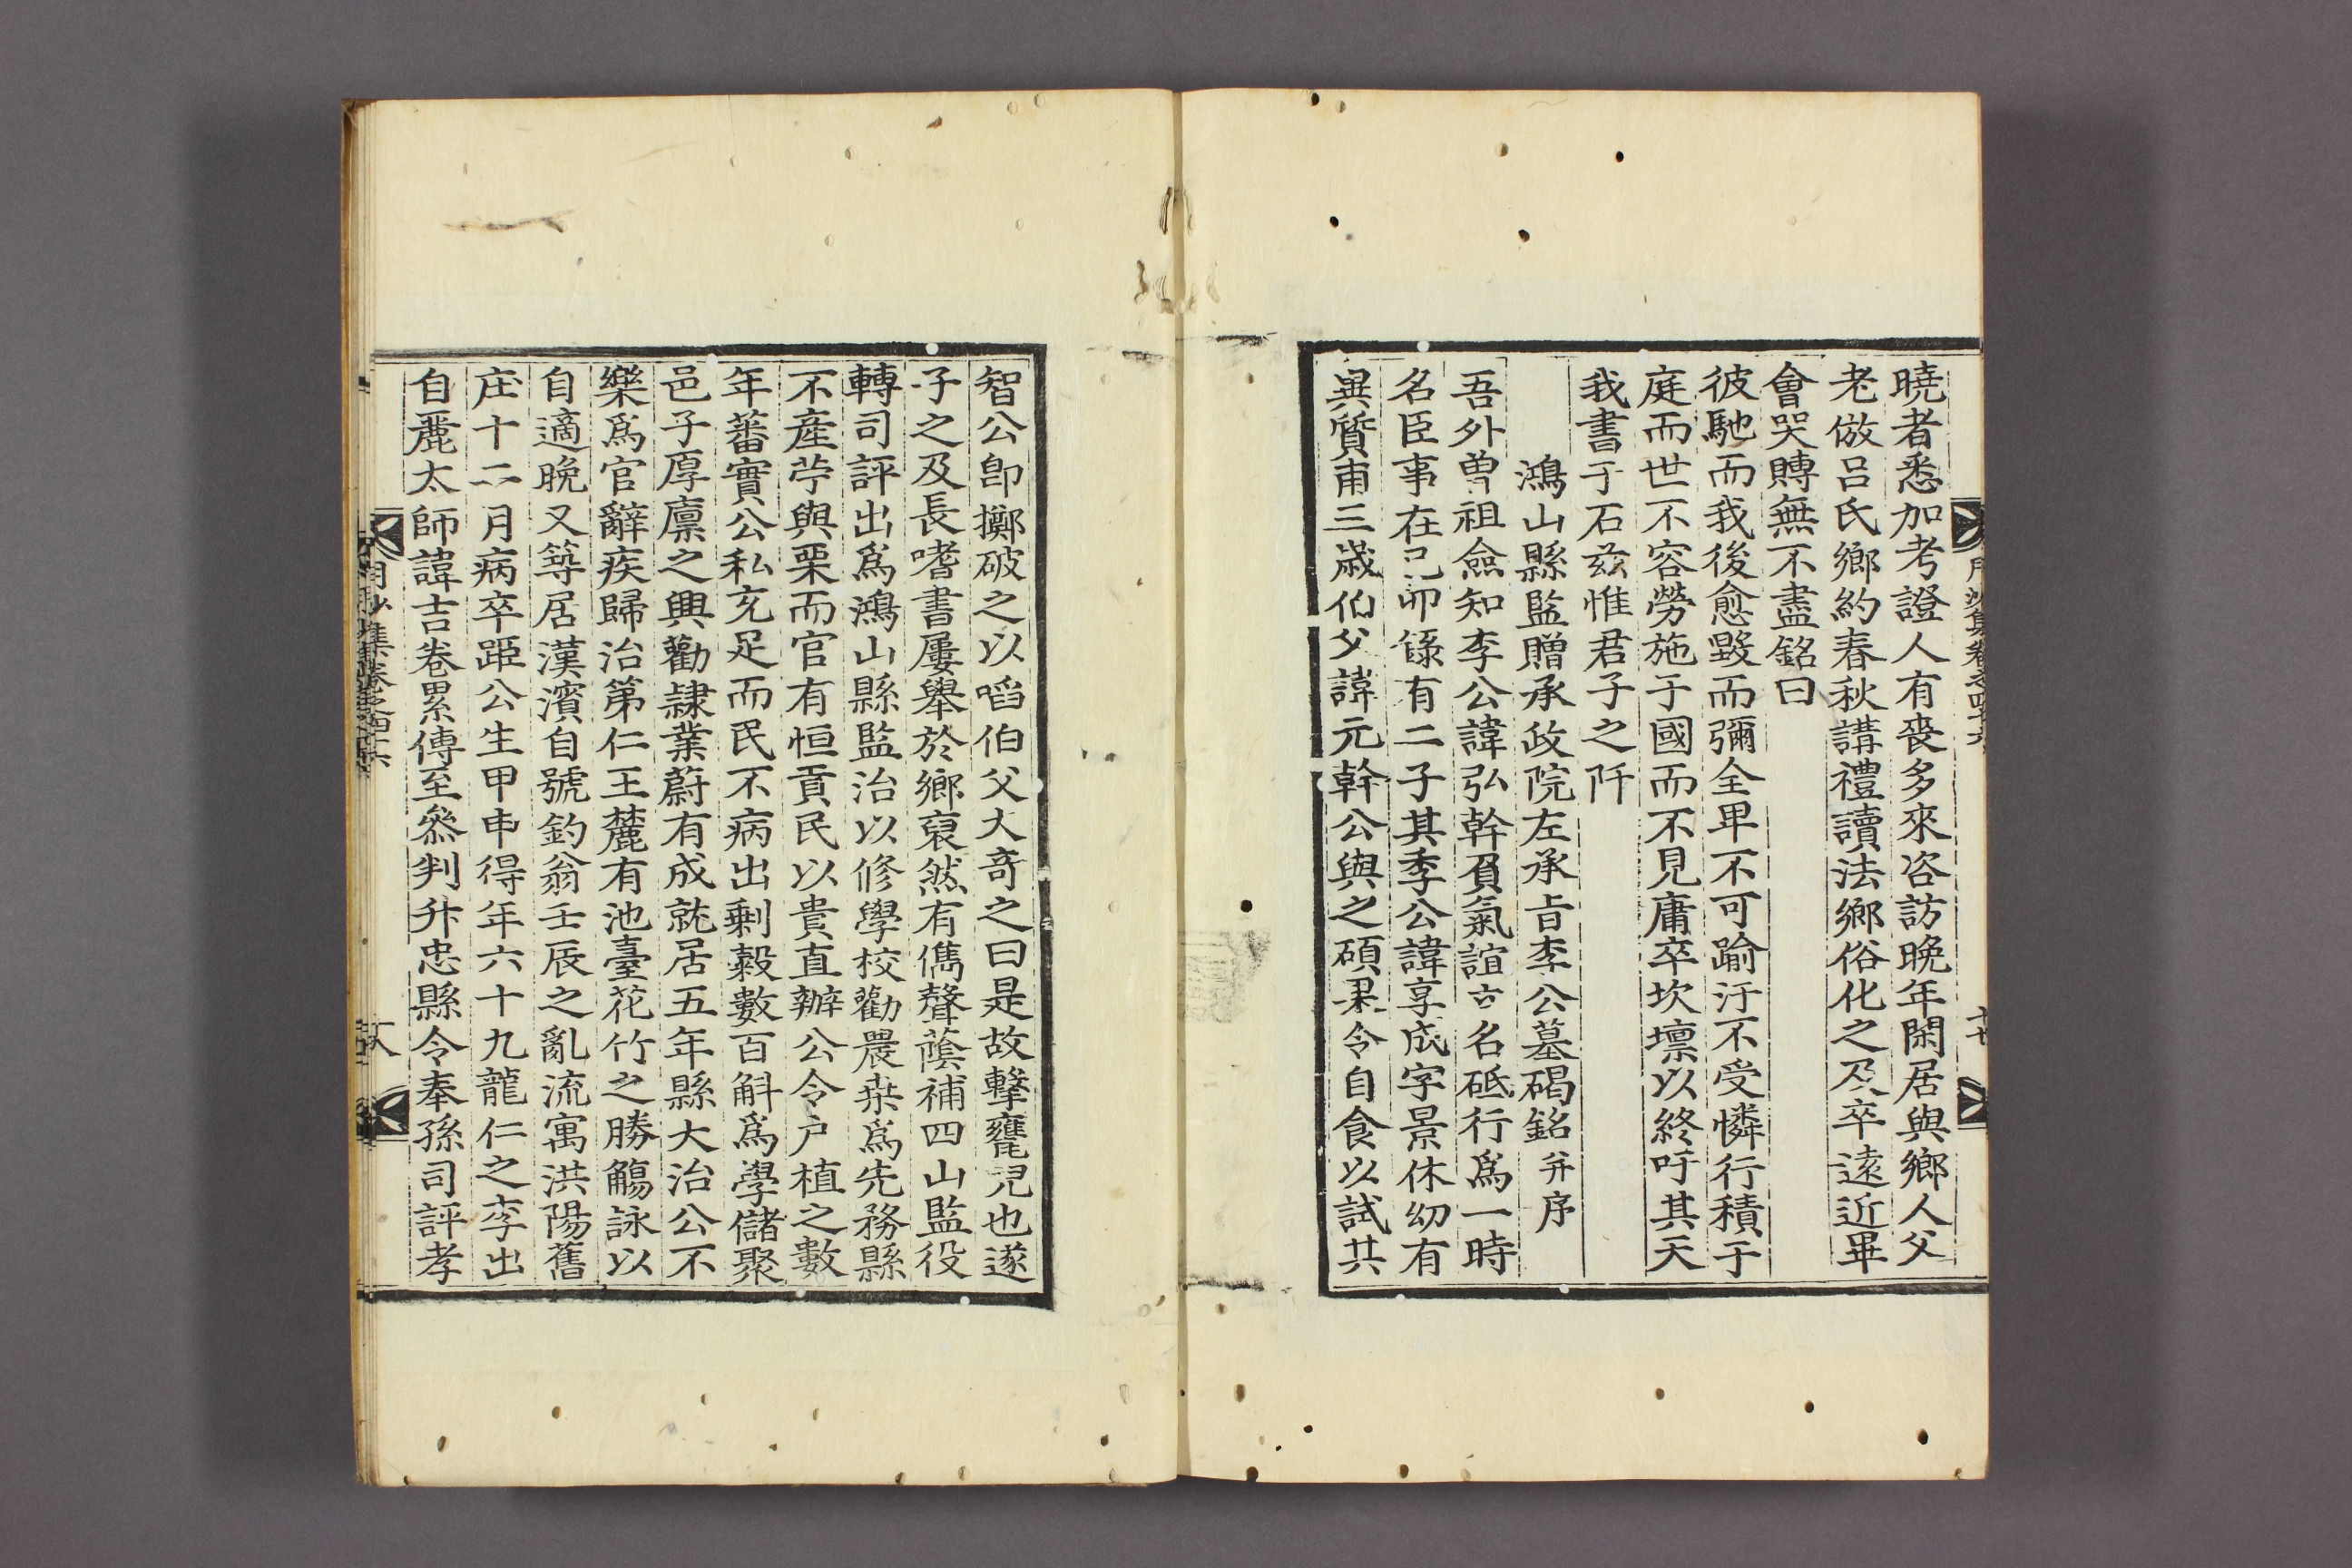 月沙集卷之四十六
曉者悉加考證人有喪多來咨訪晩年閑居與鄕人父
老倣呂氏鄕約春秋講禮讀法鄕俗化之及卒遠近畢
會哭賻無不盡銘曰
彼馳而我後愈毀而彌全卑不可踰汙不受憐行積于
庭而世不容勞施于國而不見庸卒坎壈以終吁其天
我書于石玆惟君子之阡
鴻山縣監贈承政院左承旨李公墓碣銘 幷序
吾外曾祖僉知李公諱弘幹負氣誼古名砥行爲一時
名臣事在己卯錄有二子其季公諱享成字景休幼有
異質甫三歲伯父諱元幹公與之碩果令自食以試其
智公卽擲破之以啗伯父大奇之曰是故擊甕兒也遂
子之及長嗜書屢擧於鄕裒然有儁聲蔭補四山監役
轉司評出爲鴻山縣監治以修學校勸農桒爲先務縣
不產苧與栗而官有恒貢民以貴直辦公令户植之數
年蕃實公私充足而民不病出剩穀數百斛爲學儲聚
邑子厚廩之興勸隷業蔚有成就居五年縣大治公不
樂爲官辭疾歸治第仁王麓有池臺花竹之勝觴詠以
自適晩又築居漢濱自號釣翁壬辰之亂流寓洪陽舊
庄十二月病卒距公生甲申得年六十九龍仁之李出
自麗太師諱吉卷累傳至叅判升忠縣令奉孫司評孝
月沙集卷之四十六